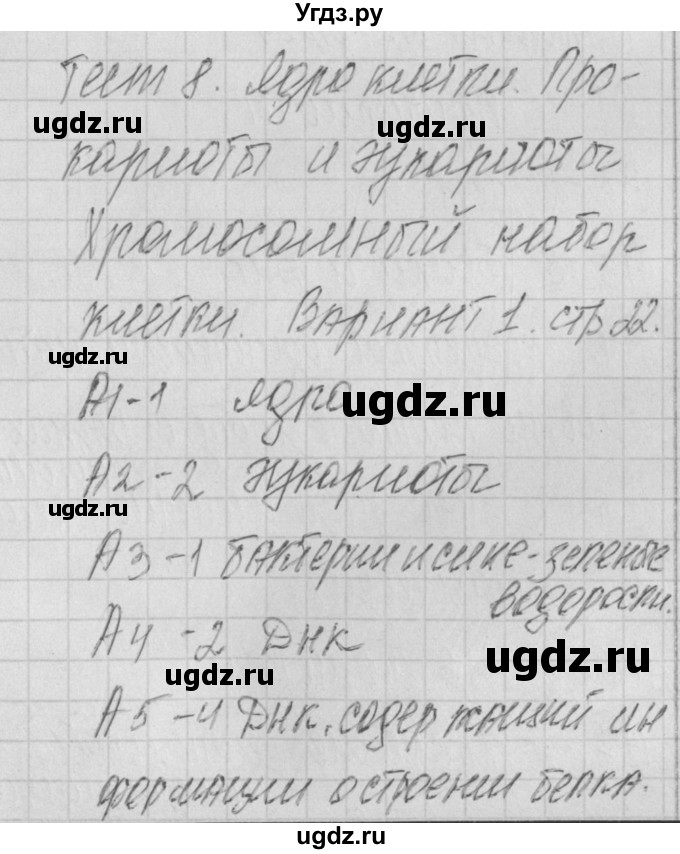 Угдз.ру
Тест 8. Ядро клетки. Про-
ugdz.ru ugdz.ru
кариоты и эукариоты
Хромосомный набор
клетки. Вариант 1. стр 22.
ugdz.ru
А1-1 ядро
ugdz.ru
А2-2 эукариоты
ugdz.ru
А3-1 бактерии и сине-зеленые
водоросли.
А4-2 ДНК
ugdz.ru ugdz.ru
А5-4 ДНК, содержащий ин
формации о строении белка.
ugdz.ru